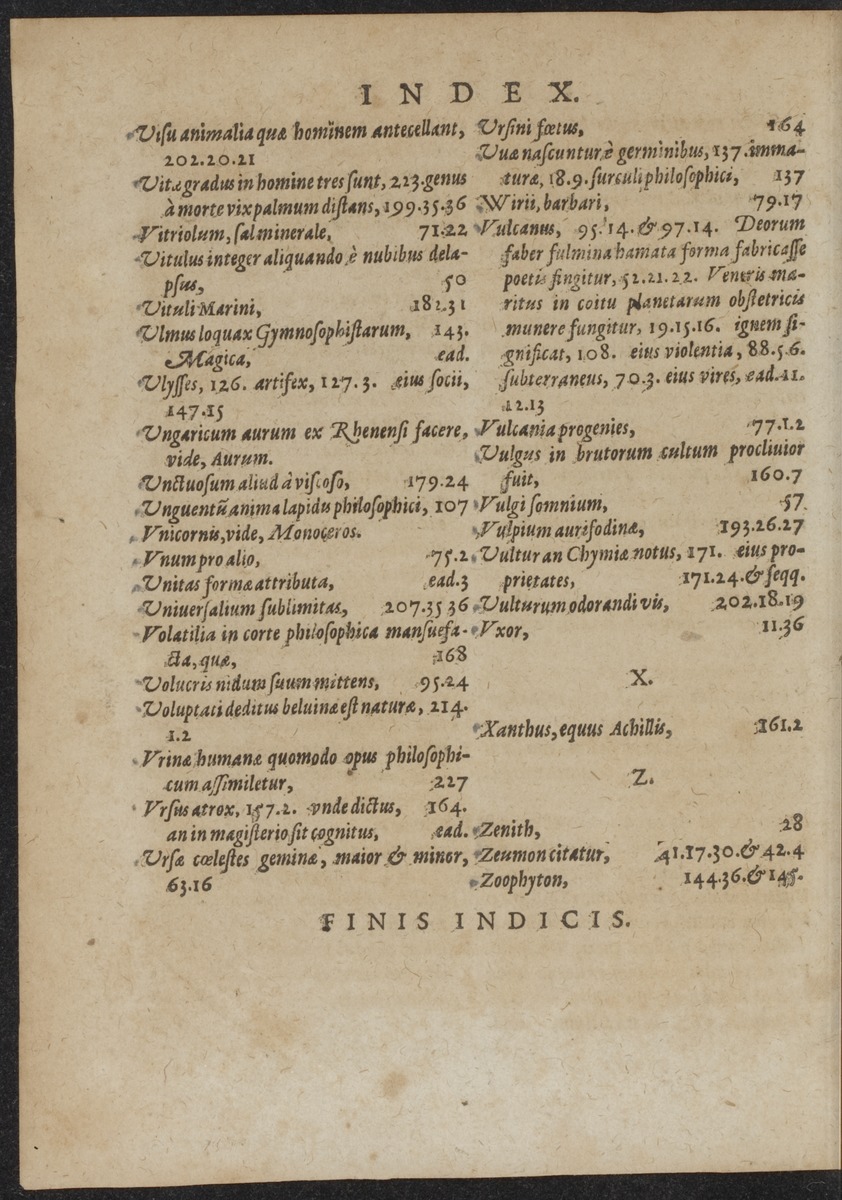 INDEX.
Viſu animalia quæ hominem antecellant,
202.20.21
Vitæ gradus in homine tres ſunt, 223. genus
à morte vix palmum diſtans, 199.35.36
Vitriolum, ſal minerale, 71.22
Vitulus integer aliquando è nubibus dela-
pſus, 50
Vituli Marini, 182.31
Ulmus loquax Gymnoſophiſtarum, 143.
Magica, ead.
Ulyſſes, 126. artifex, 127.3. eius ſocii,
147.15
Ungaricum aurum ex Rhenenſi facere,
vide, Aurum.
Unctuoſum aliud à viſcoſo, 179.24
Unguentũ anima lapidis philoſophici, 107
Vnicornis, vide, Monoceros.
Vnum pro alio, 75.2
Unitas formæ attributa, ead.3
Uniuerſalium ſublimitas, 207.35 36
Volatilia in corte philoſophica manſuefa-
cta, quæ, 168
Volucris nidum ſuum mittens, 95.24
Voluptati deditus beluinæ eſt naturæ, 214.
1.2
Vrinæ humanæ quomodo opus philoſophi-
cum aſſimiletur, 227
Vrſus atrox, 157.2. vnde dictus, 164.
an in magiſterio ſit cognitus, ead.
Urſæ cœleſtes geminæ, maior & minor,
63.16
Urſini fœtus, 164
Vuæ naſcuntur è germinibus, 137. imma-
turæ, 18.9. ſurculi philoſophici, 137
Wirii, barbari, 79.17
Vulcanus, 95.14. & 97.14. Deorum
faber fulmina hamata forma fabricaſſe
poetis fingitur, 52.21.22. Veneris ma-
ritus in coitu planetarum obſtetricis
munere fungitur, 19.15.16. ignem ſi-
gnificat, 108. eius violentia, 88.5.6.
ſubterraneus, 70.3. eius vires, ead.11.
12.13
Vulcania progenies, 77.1.2
Vulgus in brutorum cultum procliuior
fuit, 160.7
Vulgi ſomnium, 57
Vulpium aurifodinæ, 193.26.27
Vultur an Chymiæ notus, 171. eius pro-
prietates, 171.24. & ſeqq.
Vulturum odorandi vis, 202.18.19
Vxor, 11.36
X.
Xanthus, equus Achillis, 161.2
Z.
Zenith, 28
Zeumon citatur, 41.17.30. & 42.4
Zoophyton, 144.36. & 145.
FINIS INDICIS.